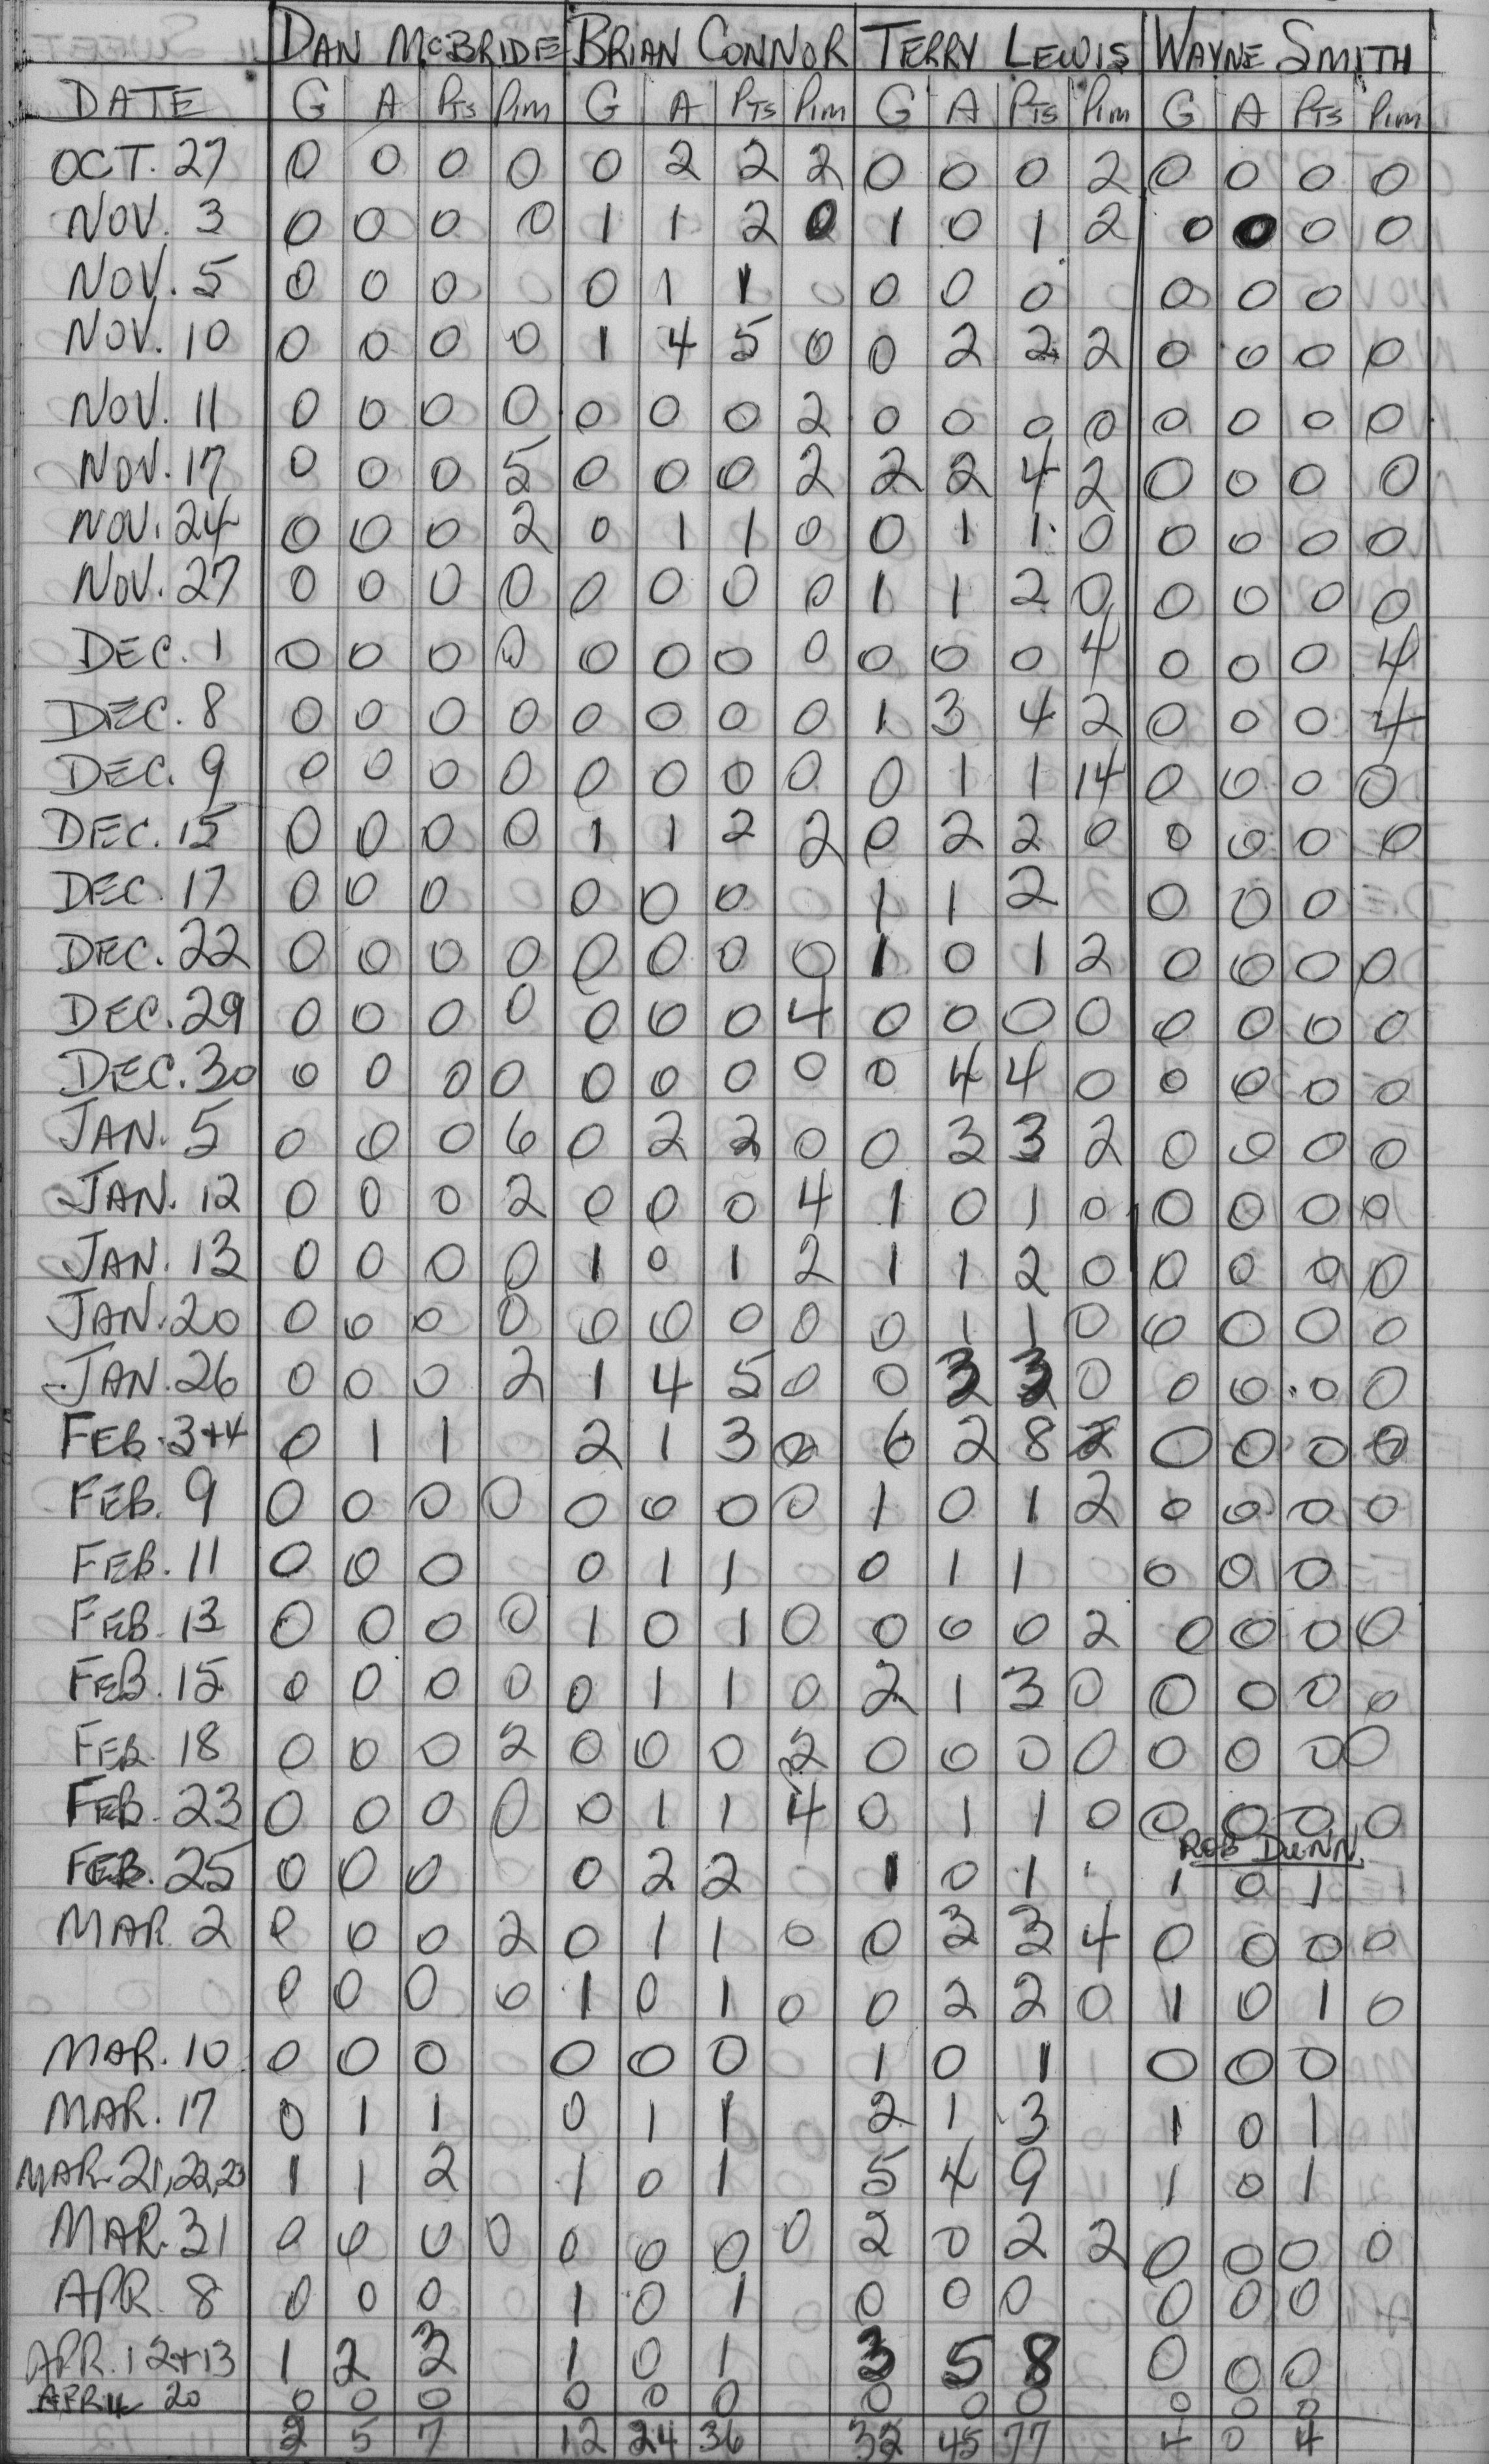 DAN McBRIDE BRIAN CONNOR TERRY LEWIS WAYNE SMITH
DATE G A PTS Pim G A PTS Pim G A PTS Pim G A PTS Pim
OCT. 27 0 0 0 0 0 2 2 2 0 0 0 2 0 0 0 0
NOV. 3 0 0 0 0 1 1 2 0 1 0 1 2 0 0 0 0
NOV. 5 0 0 0 0 1 1 0 0 0 0 0 0
NOV. 10 0 0 0 0 1 4 5 0 0 2 2 2 0 0 0 0
NOV. 11 0 0 0 0 0 0 0 2 0 0 0 0 0 0 0 0
NOV. 17 0 0 0 5 0 0 0 2 2 2 4 2 0 0 0 0
NOV. 24 0 0 0 2 0 1 1 0 0 1 1 0 0 0 0 0
NOV. 27 0 0 0 0 0 0 0 0 1 1 2 0 0 0 0 0
DEC. 1 0 0 0 0 0 0 0 0 0 0 0 4 0 0 0 4
DEC. 8 0 0 0 0 0 0 0 0 1 3 4 2 0 0 0 4
DEC. 9 0 0 0 0 0 0 0 0 0 1 1 14 0 0 0 0
DEC. 15 0 0 0 0 1 1 2 2 0 2 2 0 0 0 0 0
DEC. 17 0 0 0 0 0 0 1 1 2 0 0 0
DEC. 22 0 0 0 0 0 0 0 0 1 0 1 2 0 0 0 0
DEC. 29 0 0 0 0 0 0 0 4 0 0 0 0 0 0 0 0
DEC. 30 0 0 0 0 0 0 0 0 0 4 4 0 0 0 0 0
JAN. 5 0 0 0 6 0 2 2 0 0 3 3 2 0 0 0 0
JAN. 12 0 0 0 2 0 0 0 4 1 0 1 0 0 0 0 0
JAN. 13 0 0 0 0 1 0 1 2 1 1 2 0 0 0 0 0
JAN. 20 0 0 0 0 0 0 0 0 0 1 1 0 0 0 0 0
JAN. 26 0 0 0 2 1 4 5 0 0 3 3 0 0 0 0 0
FEB. 3+4 0 1 1 2 1 3 0 6 2 8 2 0 0 0 0
FEB. 9 0 0 0 0 0 0 0 0 1 0 1 2 0 0 0 0
FEB. 11 0 0 0 0 1 1 0 1 1 0 0 0
FEB. 13 0 0 0 0 1 0 1 0 0 0 0 2 0 0 0 0
FEB. 15 0 0 0 0 0 1 1 0 2 1 3 0 0 0 0 0
FEB. 18 0 0 0 2 0 0 0 2 0 0 0 0 0 0 0 0
FEB. 23 0 0 0 0 0 1 1 4 0 1 1 0 0 0 0 0
ROB DUNN
FEB. 25 0 0 0 0 2 2 1 0 1 1 0 1
MAR. 2 0 0 0 2 0 1 1 0 0 3 3 4 0 0 0 0
0 0 0 0 1 0 1 0 0 2 2 0 1 0 1 0
MAR. 10 0 0 0 0 0 0 1 0 1 0 0 0
MAR. 17 0 1 1 0 1 1 2 1 3 1 0 1
MAR. 21,22,23 1 1 2 1 0 1 5 4 9 1 0 1
MAR. 31 0 0 0 0 0 0 0 0 2 0 2 2 0 0 0 0
APR. 8 0 0 0 1 0 1 0 0 0 0 0 0
APR. 12+13 1 2 3 1 0 1 3 5 8 0 0 0
APRIL 20 0 0 0 0 0 0 0 0 0 0 0 0
2 5 7 12 24 36 32 45 77 4 0 4